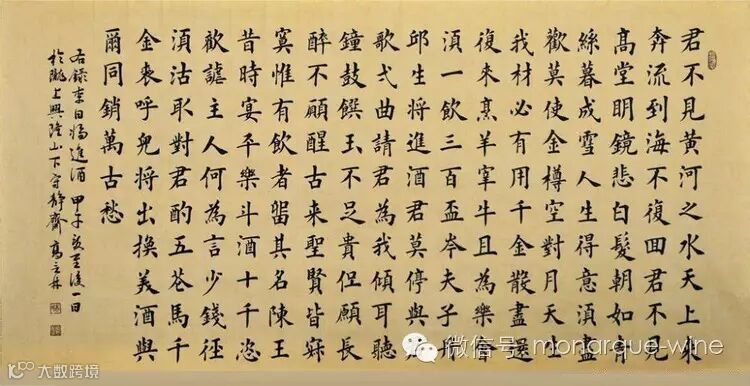 君不見黃河之水天上來
奔流到海不復回君不見
高堂明鏡悲白髮朝如青
絲暮成雪人生得意湏盡
歡莫使金樽空對月天生
我材必有用千金散盡還
復来烹羊宰牛且為樂會
湏一飲三百盃岑夫子丹
邱生將進酒君莫停與君
歌弌曲請君為我傾耳聽
鐘鼓饌玉不足貴但願長
醉不願醒古来聖賢皆寂
寞惟有飲者留其名陳王
昔時宴平樂斗酒十千恣
歡謔主人何為言少錢徑
湏沽取對君酌五花馬千
金裘呼兒將出換美酒與
爾同銷萬古愁
右錄李白將進酒 甲子夏至後一日
於隴上興隆山下守靜齋 高
微信号: monarque-wine
大数跨境